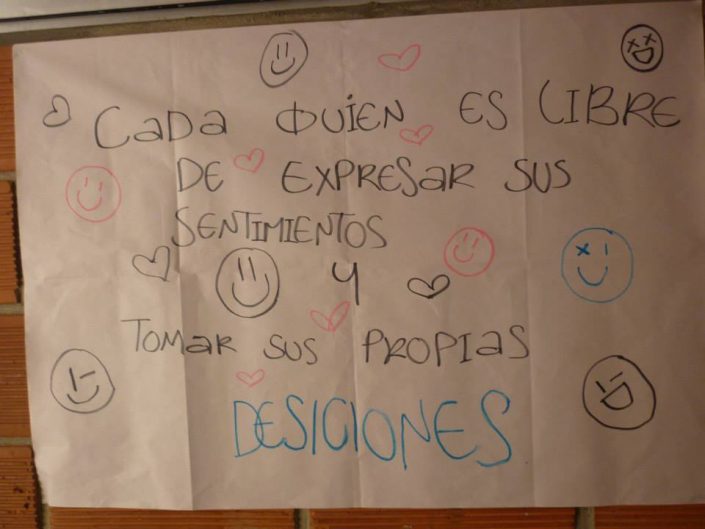 CaDa QUIEN ES LIBRE
DE EXPRESaR SUS
SENTIMIENTOS
Y
TOMaR SUS PROPIaS
DESICIONES